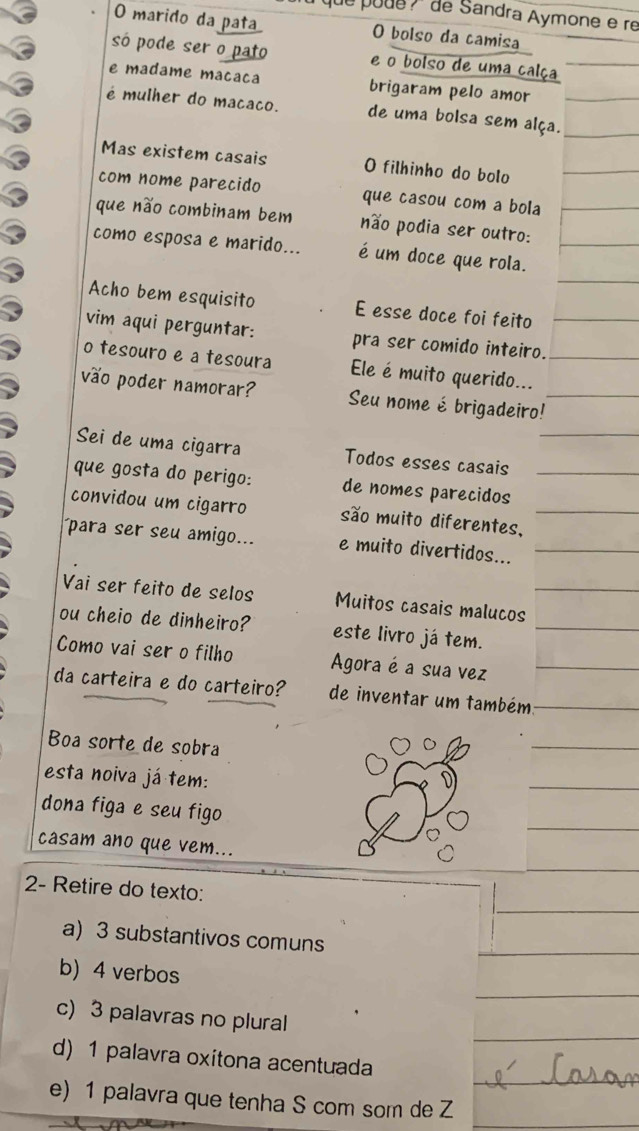 que pode?" de Sandra Aymone e re
O marido da pata
só pode ser o pato
e madame macaca
é mulher do macaco.
Mas existem casais
com nome parecido
que não combinam bem
como esposa e marido...
Acho bem esquisito
vim aqui perguntar:
o tesouro e a tesoura
vão poder namorar?
Sei de uma cigarra
que gosta do perigo:
convidou um cigarro
para ser seu amigo...
Vai ser feito de selos
ou cheio de dinheiro?
Como vai ser o filho
da carteira e do carteiro?
Boa sorte de sobra
esta noiva já tem:
dona figa e seu figo
casam ano que vem...
O bolso da camisa
e o bolso de uma calça
brigaram pelo amor
de uma bolsa sem alça.
O filhinho do bolo
que casou com a bola
não podia ser outro:
é um doce que rola.
E esse doce foi feito
pra ser comido inteiro.
Ele é muito querido...
Seu nome é brigadeiro!
Todos esses casais
de nomes parecidos
são muito diferentes,
e muito divertidos...
Muitos casais malucos
este livro já tem.
Agora é a sua vez
de inventar um também.
2- Retire do texto:
a) 3 substantivos comuns
b) 4 verbos
c) 3 palavras no plural
d) 1 palavra oxítona acentuada
e) 1 palavra que tenha S com som de Z
é Casam